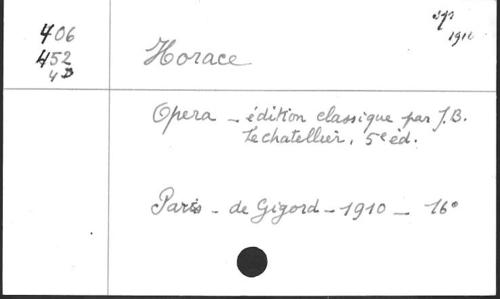 406
452
4D
1910
Horace
Opera - édition classique par J.B.
Lechatellier, 5e éd.
Paris - de Gigord - 1910 - 16°